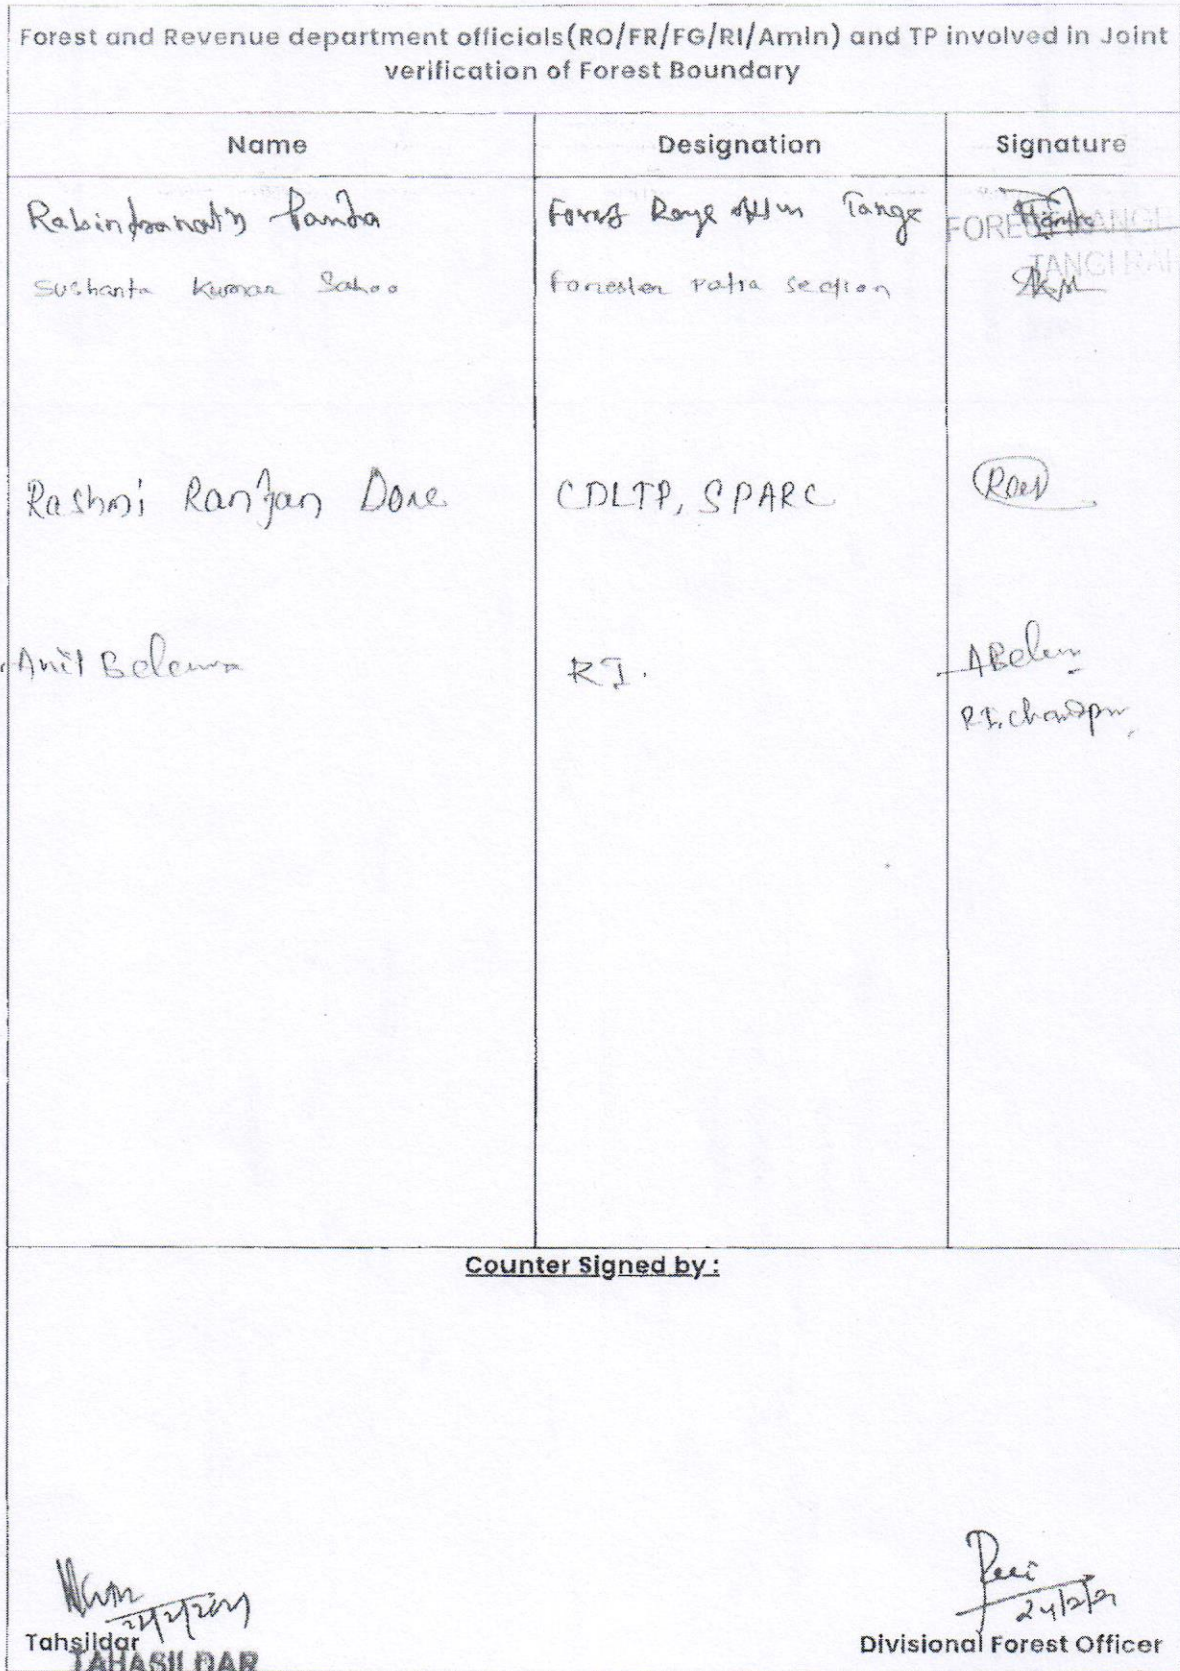 Forest and Revenue department officials(RO/FR/FG/RI/Amin) and TP involved in Joint
verification of Forest Boundary
Name Designation Signature
Rabindranath Panda Forest Range Tange
FOREST RANGE
TANGI RAN
Sushanta Kumar Sahoo Forester Patia section
Rashmi Ranjan Dore CDLTP, SPARC
Anil R.I.
R.I. Chandpur
Counter Signed by :
24/2/21
Tahsildar Divisional Forest Officer
TAHASILDAR